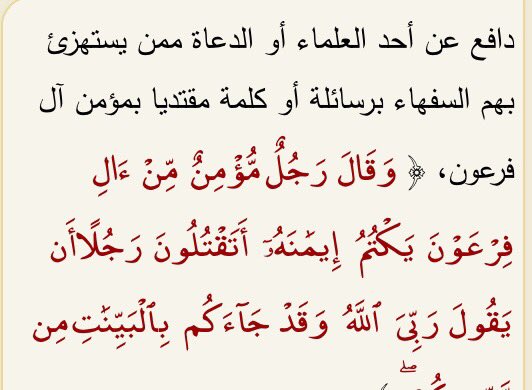 دافع عن أحد العلماء أو الدعاة ممن يستهزئ
بهم السفهاء برسائلة أو كلمة مقتديا بمؤمن آل
فرعون، ﴿ وَقَالَ رَجُلٌ مُّؤْمِنٌ مِّنْ ءَالِ
فِرْعَوْنَ يَكْتُمُ إِيمَٰنَهُۥٓ أَتَقْتُلُونَ رَجُلًا أَن
يَقُولَ رَبِّىَ ٱللَّهُ وَقَدْ جَآءَكُم بِٱلْبَيِّنَٰتِ مِن